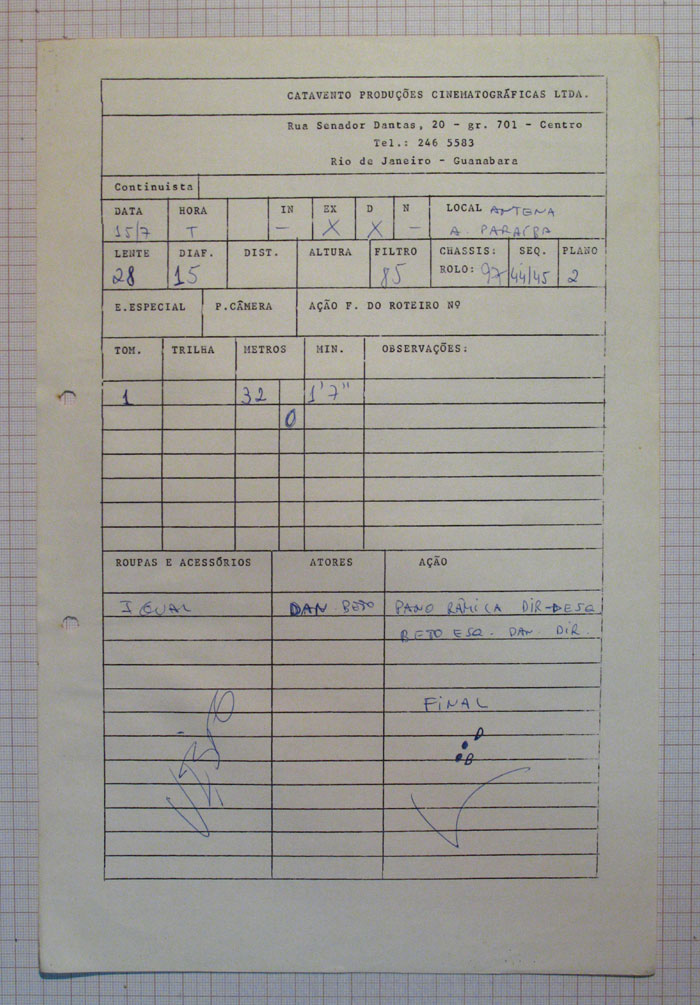 CATAVENTO PRODUÇÕES CINEMATOGRÁFICAS LTDA.
Rua Senador Dantas, 20 - gr. 701 - Centro
Tel.: 246 5583
Rio de Janeiro - Guanabara
Continuista
DATA HORA IN EX D N LOCAL ANTENA
15/7 T — X X — A. PARAÍBA
LENTE DIAF. DIST. ALTURA FILTRO CHASSIS: SEQ. PLANO
28 15 85 ROLO: 97 44/45 2
E.ESPECIAL P.CÂMERA AÇÃO F. DO ROTEIRO Nº
TOM. TRILHA METROS MIN. OBSERVAÇÕES:
1 32 1'7"
0
ROUPAS E ACESSÓRIOS ATORES AÇÃO
IGUAL DAN BETO PANO RÂMICA DIR-DESQ
BETO ESQ. DAN DIR.
FINAL
D
B